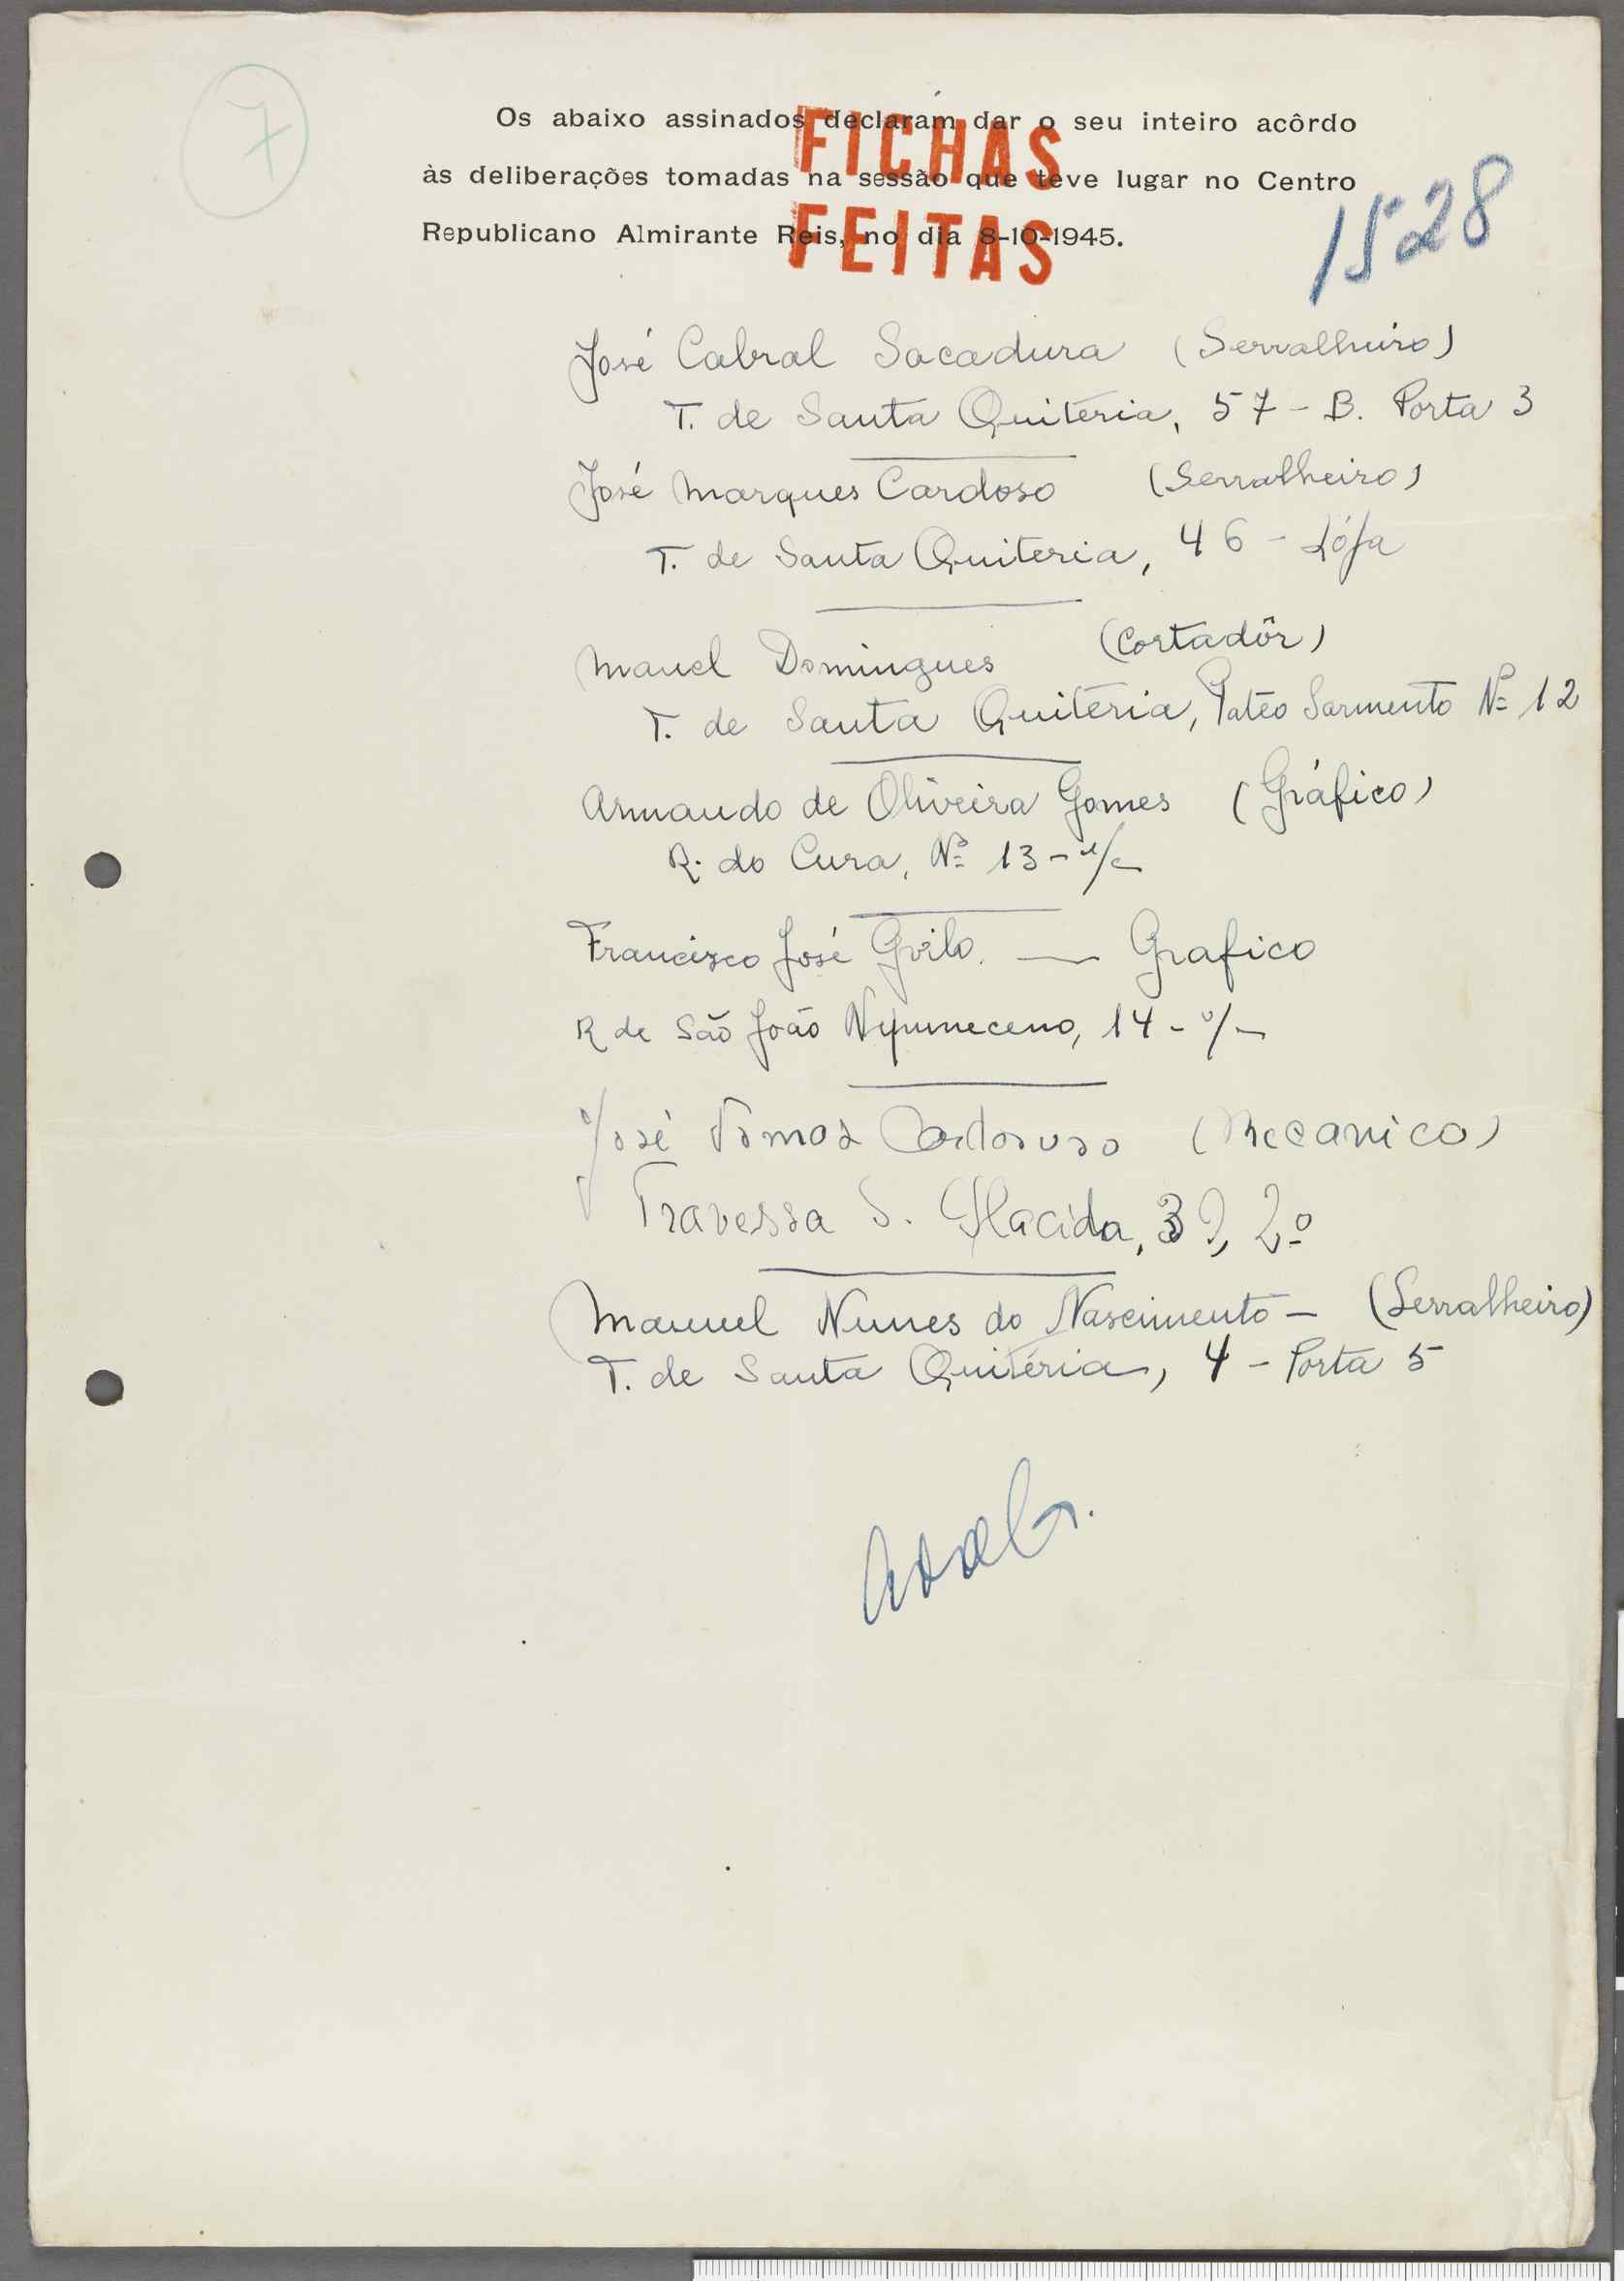 7
Os abaixo assinados declaram dar o seu inteiro acôrdo
às deliberações tomadas na sessão que teve lugar no Centro
Republicano Almirante Reis, no dia 8-10-1945.
FICHAS
FEITAS
1528
José Cabral Sacadura (Serralheiro)
T. de Santa Quitéria, 57 - B. Porta 3
José Marques Cardoso (Serralheiro)
T. de Santa Quiteria, 46 - Lója
Manuel Domingues (Cortadôr)
T. de Santa Quitéria, Patéo Sarmento Nº 12
Armando de Oliveira Gomes (Gráfico)
R. do Cura, Nº 13 - r/c
Francisco José Grilo. — Grafico
R de São João Nepumeceno, 14 - r/c
José (Mecanico)
Travessa S. Placida, 39, 2º
Manuel Nunes do Nascimento - (Serralheiro)
T. de Santa Quitéria, 4 - Porta 5